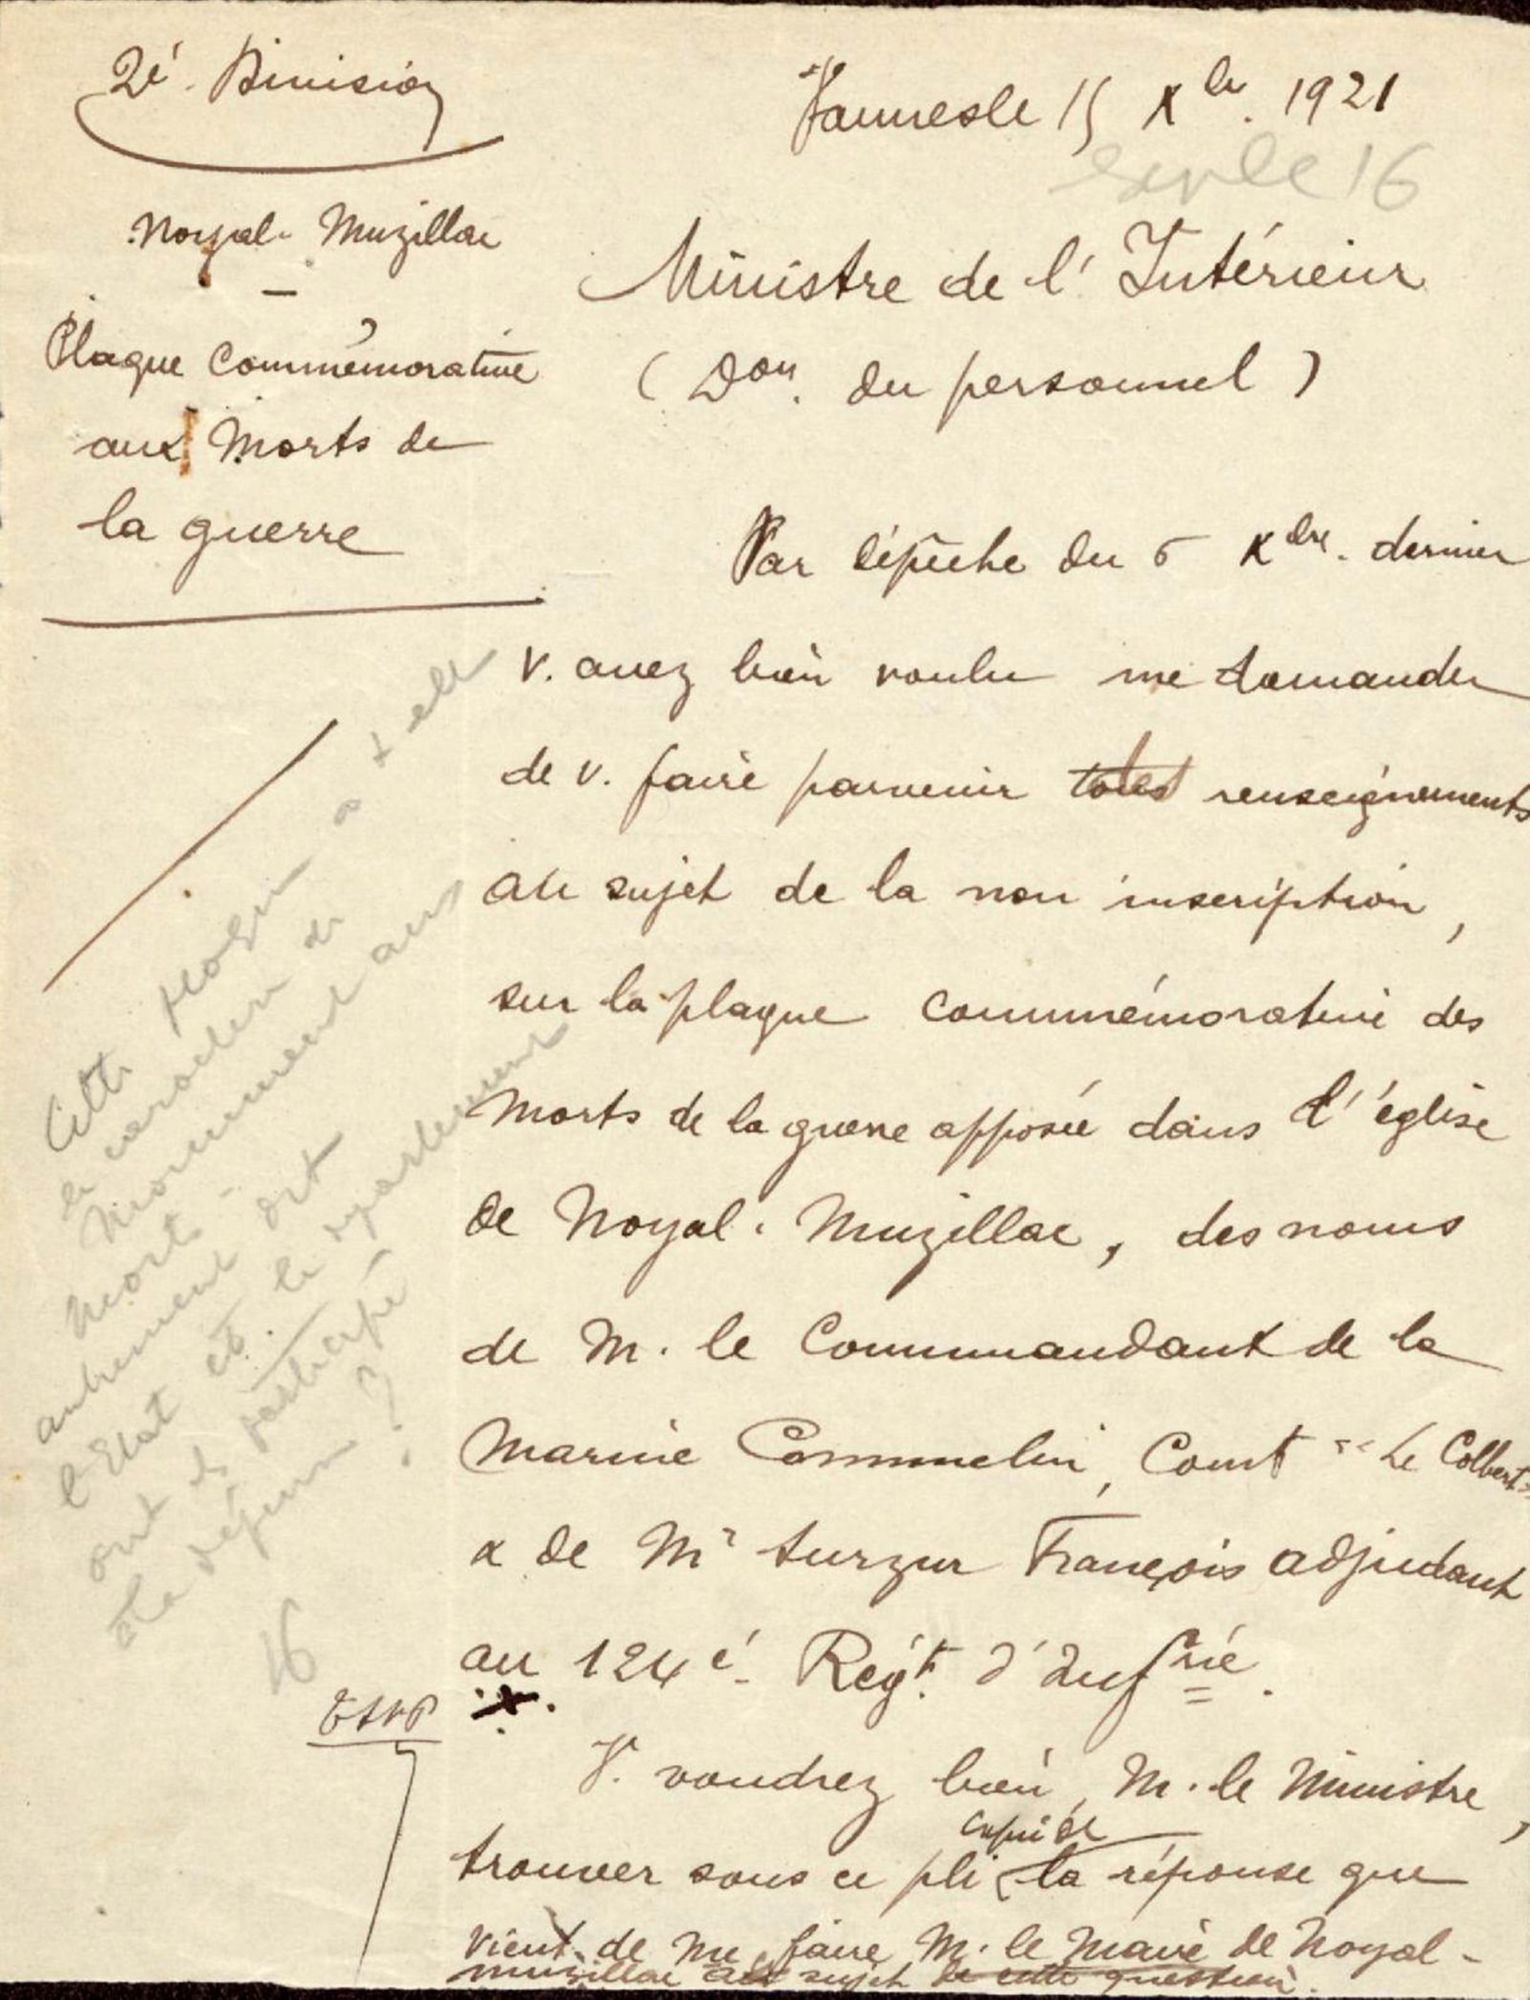 2é. Division
Vannes le 15 Xbr. 1921
16
Noyal-Muzillac
Plaque Commémorative
aux Morts de
la guerre
Ministre de l'Intérieur
(Don. du personnel)
Par dépêche du 5 Xbre. dernier
v. avez bien voulu me demander
de v. faire parvenir renseignements
au sujet de la non inscription,
sur la plaque commémorative des
Morts de la guerre apposée dans l'église
de Noyal-Muzillac, des noms
de M. le Commandant de la
Marine Commelin, Comt "Le Colbert"
& de Mr Surzur François adjudant
au 124é. Régt. d'Infrie.
x.
V. voudrez bien, M. le Ministre,
copie de
trouver sous ce pli la réponse que
vient de me faire M. le Maire de Noyal-
Muzillac au sujet de cette question.
Cette plaque a t elle
le caractère de
Monument aux
Morts -
autrement dit
l'Etat et le département
ont ils participé
à la dépense ?
16